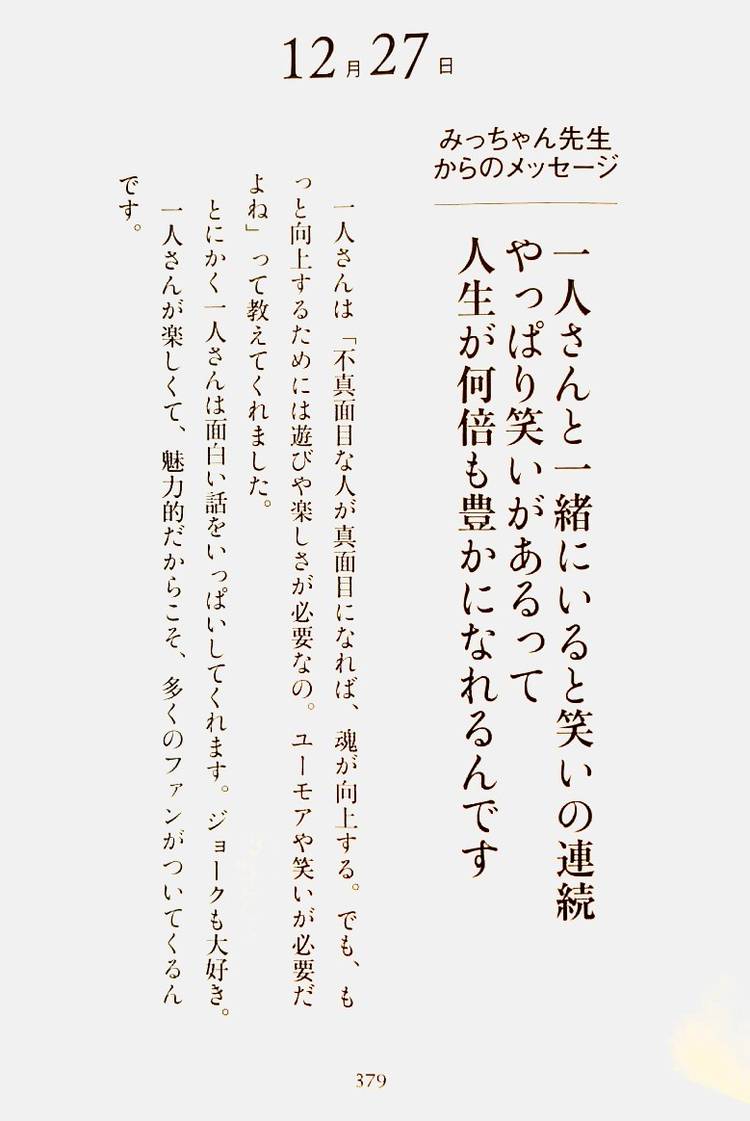 12月27日
みっちゃん先生
からのメッセージ
一人さんと一緒にいると笑いの連続
やっぱり笑いがあるって
人生が何倍も豊かになれるんです
一人さんは「不真面目な人が真面目になれば、魂が向上する。でも、も
っと向上するためには遊びや楽しさが必要なの。ユーモアや笑いが必要だ
よね」って教えてくれました。
とにかく一人さんは面白い話をいっぱいしてくれます。ジョークも大好き。
一人さんが楽しくて、魅力的だからこそ、多くのファンがついてくるん
です。
379